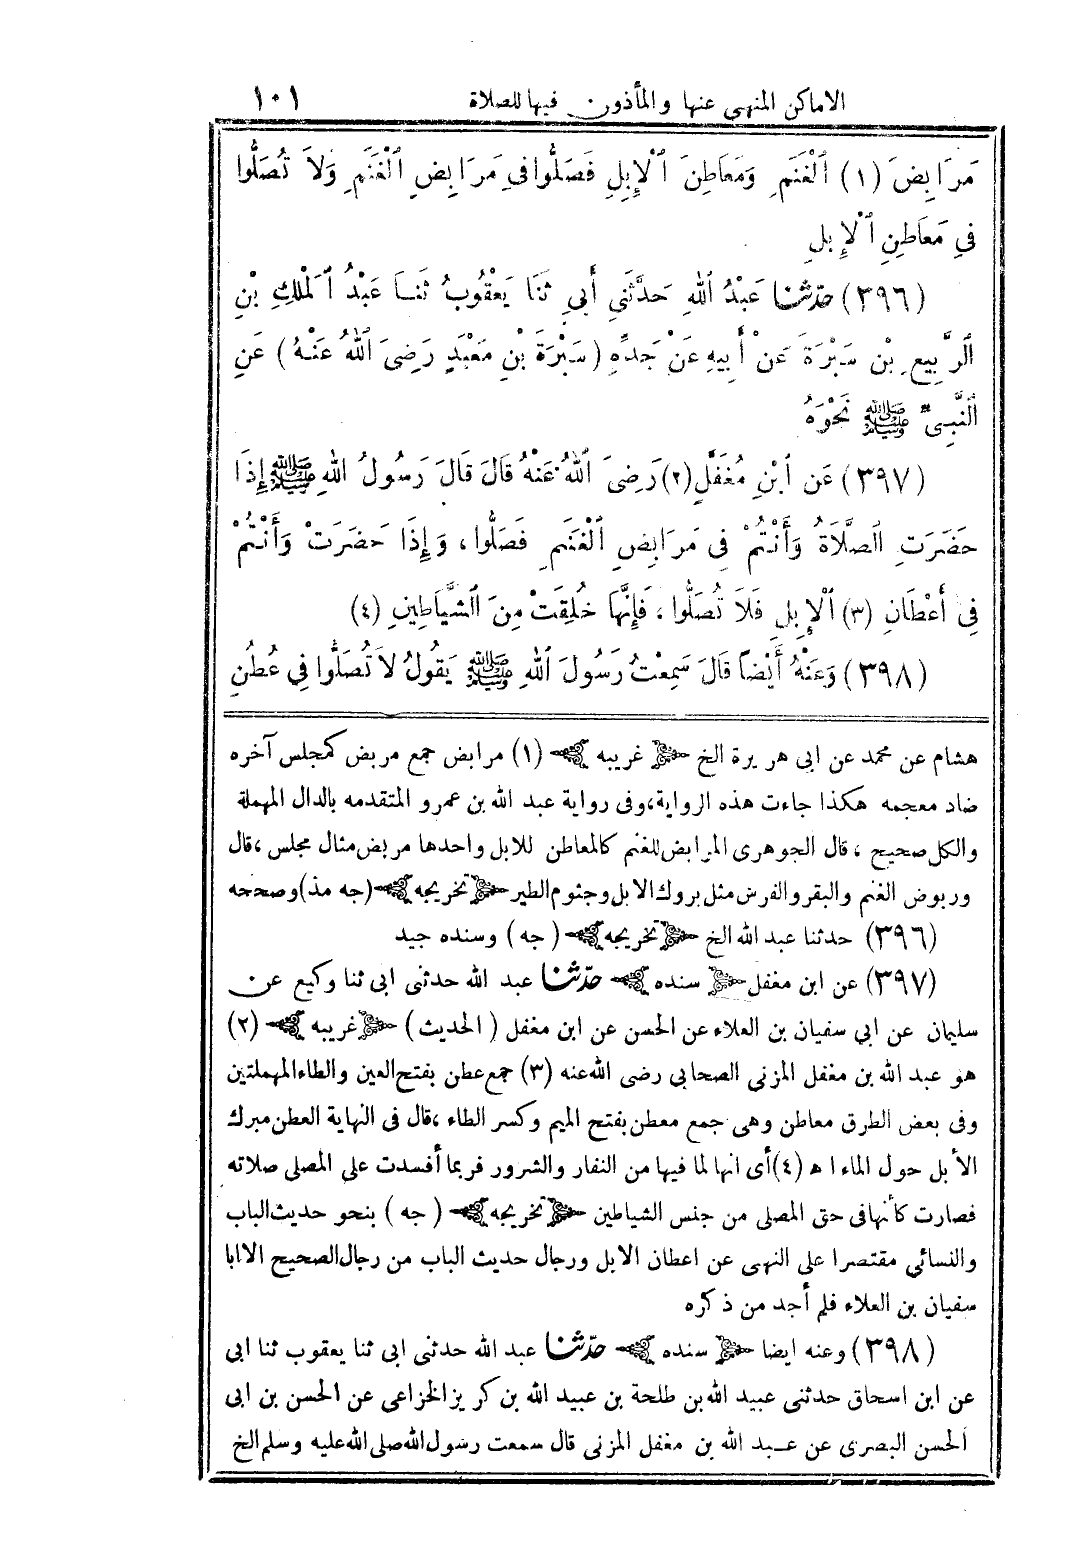 الاماكن المنهى عنها والمأذون فيها للصلاة ١٠١
مَرَابِضَ (١) ٱلْغَنَمِ وَمَعَاطِنَ ٱلْإِبِلِ فَصَلُّوا فِي مَرَابِضِ ٱلْغَنَمِ وَلاَ تُصَلُّوا
فِي مَعَاطِنِ ٱلْإِبِلِ
(٣٩٦) حَدَّثَنَا عَبْدُ ٱللهِ حَدَّثَنِي أَبِي ثَنَا يَعْقُوبُ ثَنَا عَبْدُ ٱلْمَلِكِ بْنِ
ٱلرَّبِيعِ بْنِ سَبْرَةَ عَنْ أَبِيهِ عَنْ جَدِّهِ (سَبْرَةَ بْنِ مَعْبَدٍ رَضِيَ ٱللهُ عَنْهُ) عَنِ
ٱلنَّبِيِّ ﷺ نَحْوَهُ
(٣٩٧) عَنِ ٱبْنِ مُغَفَّلٍ (٢) رَضِيَ ٱللهُ عَنْهُ قَالَ قَالَ رَسُولُ ٱللهِ ﷺ إِذَا
حَضَرَتِ ٱلصَّلاَةُ وَأَنْتُمْ فِي مَرَابِضِ ٱلْغَنَمِ فَصَلُّوا، وَإِذَا حَضَرَتْ وَأَنْتُمْ
فِي أَعْطَانِ (٣) ٱلْإِبِلِ فَلاَ تُصَلُّوا، فَإِنَّهَا خُلِقَتْ مِنَ ٱلشَّيَاطِينِ (٤)
(٣٩٨) وَعَنْهُ أَيْضًا قَالَ سَمِعْتُ رَسُولَ ٱللهِ ﷺ يَقُولُ لاَ تُصَلُّوا فِي عُطُنِ
هشام عن محمد عن ابى هريرة الخ غريبه (١) مرابض جمع مربض كمجلس آخره
ضاد معجمه هكذا جاءت هذه الرواية، وفى رواية عبد الله بن عمرو المتقدمه بالدال المهملة
والكل صحيح، قال الجوهرى المرابض للغنم كالمعاطن للابل واحدها مربض مثال مجلس، قال
وربوض الغنم والبقر والفرس مثل بروك الابل وجثوم الطير تخريجه (جه مذ) وصححه
(٣٩٦) حدثنا عبد الله الخ تخريجه (جه) وسنده جيد
(٣٩٧) عن ابن مغفل سنده حدّثنا عبد الله حدثنى ابى ثنا وكيع عن
سليمان عن ابي سفيان بن العلاء عن الحسن عن ابن مغفل (الحديث) غريبه (٢)
هو عبد الله بن مغفل المزنى الصحابى رضى الله عنه (٣) جمع عطن بفتح العين والطاء المهملتين
وفى بعض الطرق معاطن وهى جمع معطن بفتح الميم وكسر الطاء، قال فى النهاية العطن مبرك
الأبل حول الماء اه (٤) أى انها لما فيها من النفار والشرور فربما أفسدت على المصلى صلاته
فصارت كأنها فى حق المصلى من جنس الشياطين تخريجه (جه) بنحو حديث الباب
والنسائي مقتصرا على النهى عن اعطان الابل ورجال حديث الباب من رجال الصحيح الا ابا
سفيان بن العلاء فلم أجد من ذكره
(٣٩٨) وعنه ايضا سنده حدّثنا عبد الله حدثنى ابى ثنا يعقوب ثنا ابى
عن ابن اسحاق حدثنى عبيد الله بن طلحة بن عبيد الله بن كريز الخزاعى عن الحسن بن ابى
الحسن البصرى عن عبد الله بن مغفل المزنى قال سمعت رسول الله صلى الله عليه وسلم الخ